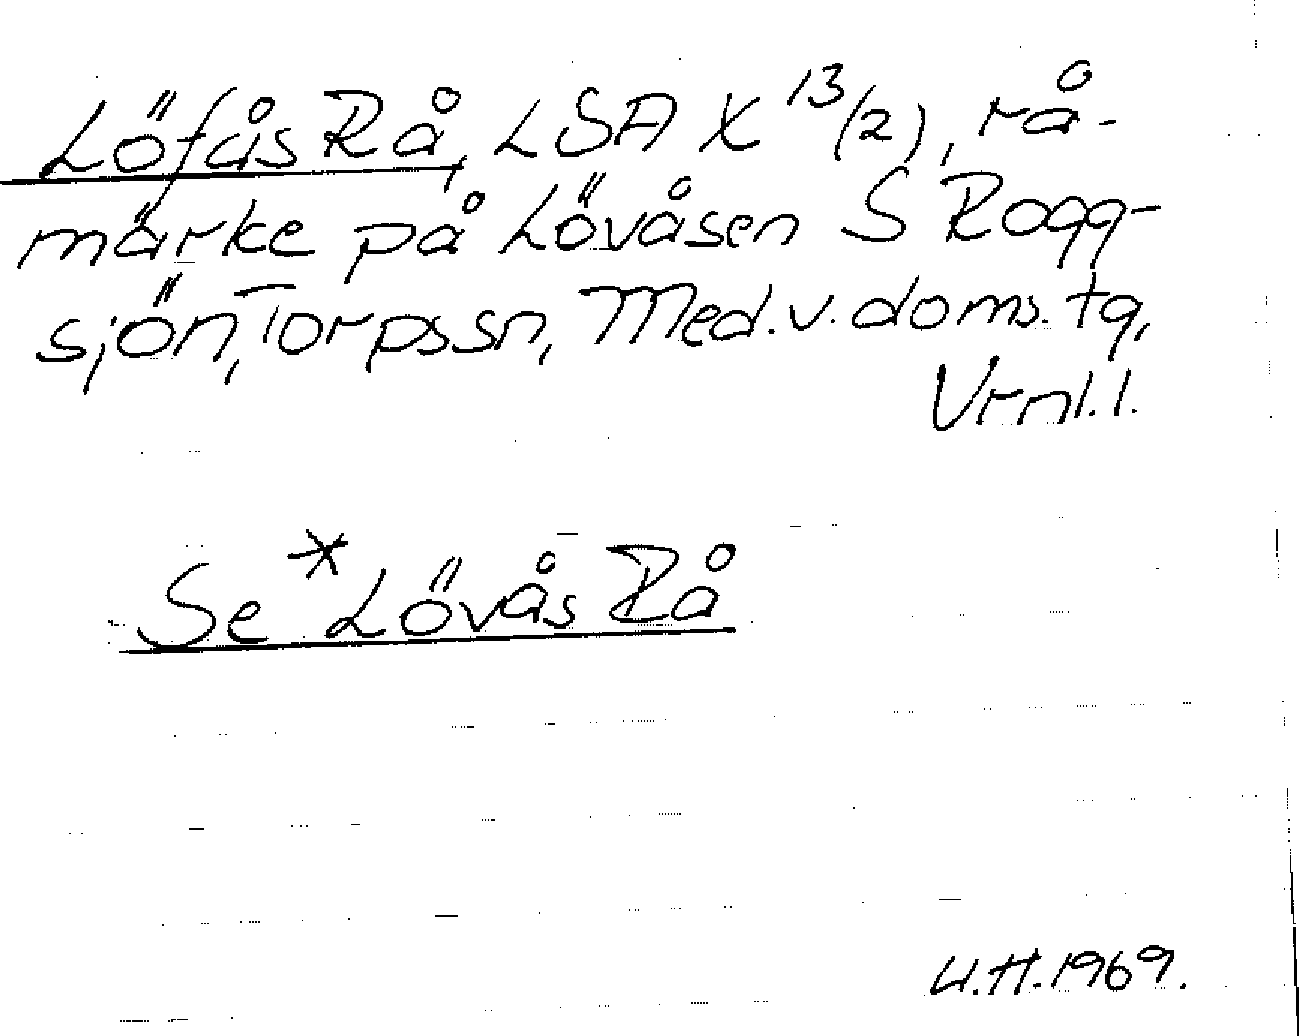 Löfås Rå, LSA X 13/(2), rå-
märke på Lövåsen S Rogg-
sjön, Torps sn, Med. v. doms. tg,
Vrnl. l.
Se *Lövås Rå
U.H. 1969.